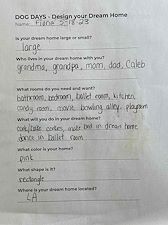 DOG DAYS - Design your Dream Home
Name: Fione 2-18-23
Is your dream home large or small?
large
Who lives in your dream home with you?
grandma, grandpa, mom, dad, Caleb
What rooms do you need and want?
bathroom, bedroom, ballet room, kitchen,
candy room, movie bowling alley, playroom
What will you do in your dream home?
eat, bake cookies, make bed in dream home
dance in ballet room
What color is your home?
pink
What shape is it?
rectangle
Where is your dream home located?
LA